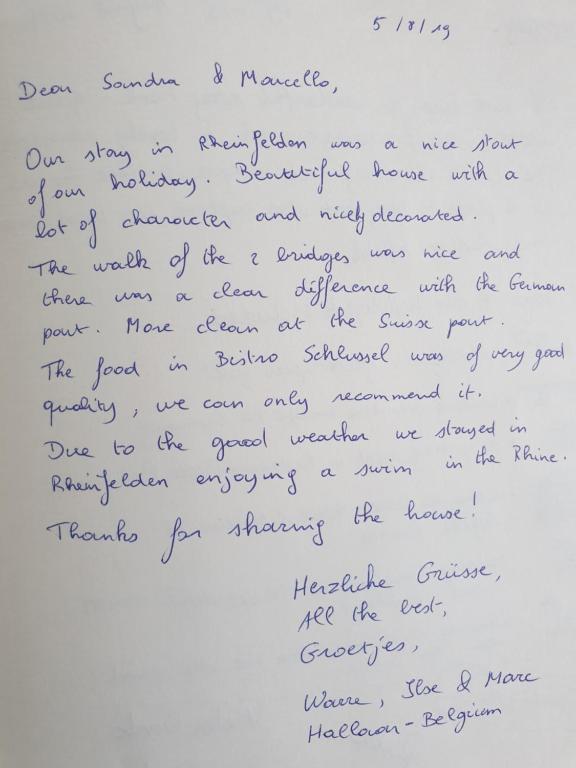 5/8/19
Dear Sandra & Marcello,
Our stay in Rheinfelden was a nice start
of our holiday. Beautiful house with a
lot of character and nicely decorated.
The walk of the 2 bridges was nice and
there was a clear difference with the German
part. More clean at the Suisse part.
The food in Bistro Schlussel was of very good
quality, we can only recommend it.
Due to the good weather we stayed in
Rheinfelden enjoying a swim in the Rhine.
Thanks for sharing the house!
Herzliche Grüsse,
All the best,
Groetjes,
Ilse & Marc
Belgium